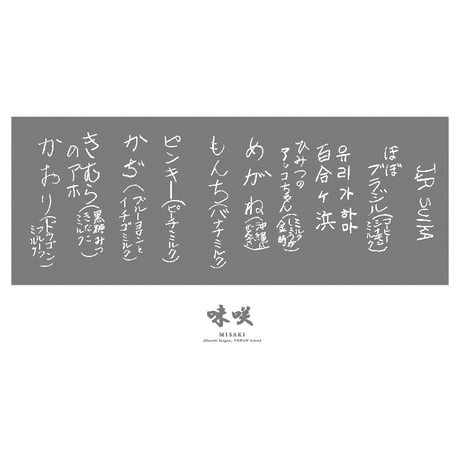 JR SUIKA
ほぼ
ブラジル(コーヒー
ミルク)
유리가 하마
百合ヶ浜
ひみつの
アンコちゃん(ミルク
金時)
めがね(沖縄
もんち(バナナミルク)
ピンキー(ピーチミルク)
かぢ(ブルーヨロンと
イチゴミルク)
きむら(黒糖みつ
きなこ
ミルク)
のアホ
かおり(ドラゴン
フルーツ
ミルク)
味咲
MISAKI